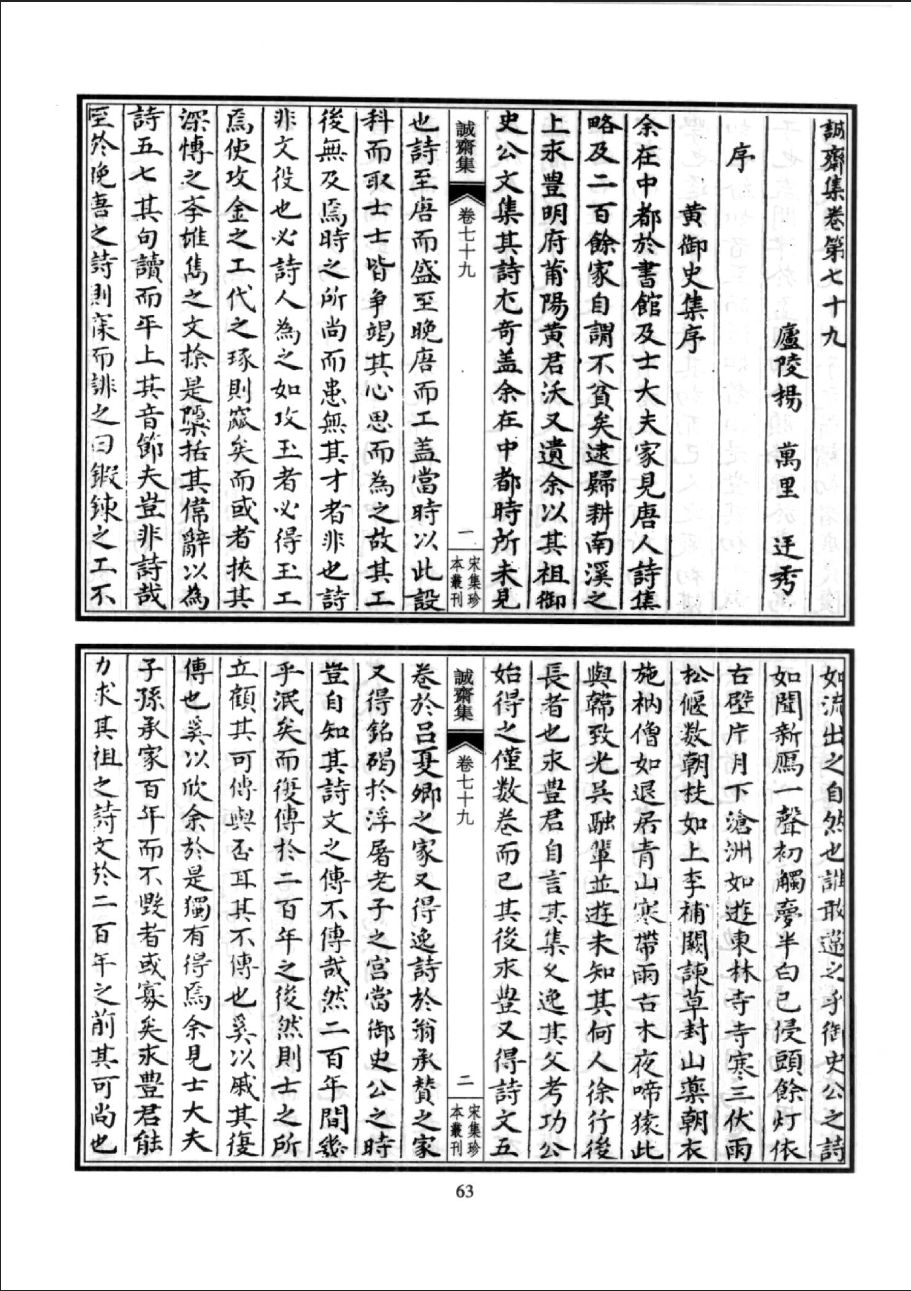 誠齋集卷第七十九
廬陵楊　萬里　廷秀
序
黃御史集序
余在中都於書館及士大夫家見唐人詩集
略及二百餘家自謂不貧矣逮歸耕南溪之
上永豐明府莆陽黃君沃又遺余以其祖御
史公文集其詩尤奇盖余在中都時所未見
誠齋集
卷七十九
一
宋集珍
本叢刊
也詩至唐而盛至晚唐而工盖當時以此設
科而取士士皆争竭其心思而為之故其工
後無及焉時之所尚而患無其才者非也詩
非文役也必詩人為之如攻玉者必得玉工
焉使攻金之工代之琢則窳矣而或者挾其
深愽之李雄雋之文扵是檃括其偉辭以為
詩五七其句讀而平上其音節夫豈非詩哉
至於晚唐之詩則寀而誹之曰鍛鍊之工不
如流出之自然也誰敢違之乎御史公之詩
如聞新鴈一聲初觸夢半白已侵頭餘灯依
古壁片月下滄洲如遊東林寺寺寒三伏雨
松偃数朝枝如上李補闕諫草封山藥朝衣
施衲僧如退居青山寒帶雨古木夜啼猿此
與韓致光吳融輩並遊未知其何人徐行後
長者也永豐君自言其集久逸其父考功公
始得之僅数卷而已其後永豐又得詩文五
誠齋集
卷七十九
二
宋集珍
本叢刊
卷於吕夏卿之家又得逸詩於翁承贊之家
又得銘碣扵浮屠老子之宫當御史公之時
豈自知其詩文之傳不傳哉然二百年間幾
乎泯矣而復傳扵二百年之後然則士之所
立顧其可傳與否耳其不傳也奚以戚其復
傳也奚以欣余於是獨有得焉余見士大夫
子孫承家百年而不毁者或寡矣永豐君能
力求其祖之詩文於二百年之前其可尚也
63